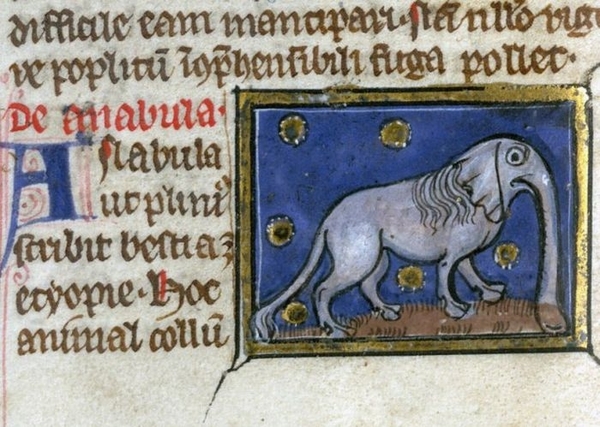 difficile eam mancipari. sꝫ ĩ illo vige
re poplitũ ĩcõp̃hensibili fuga pollet.
De anabula.
Anabula
ut plini9
scribit bestia ꝫ
ethyopie. Hoc
animal collũ